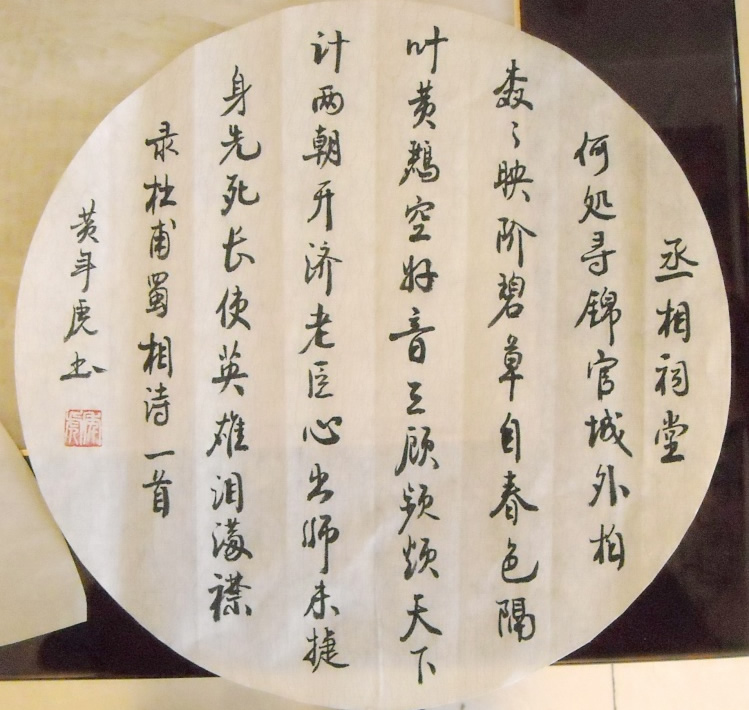 丞相祠堂
何处寻锦官城外柏
森々映阶碧草自春色隔
叶黄鹂空好音三顾频烦天下
计两朝开济老臣心出师未捷
身先死长使英雄泪满襟
录杜甫蜀相诗一首
黄年虎书